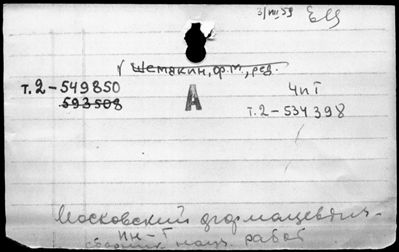 3/VIII 59 ЕЦ
√ Шемякин, ф.м., ред.
т.2-549850
593508
А
4 п Т
т.2-534398
Московский фармацевтич.
ин-т
сборник науч. работ